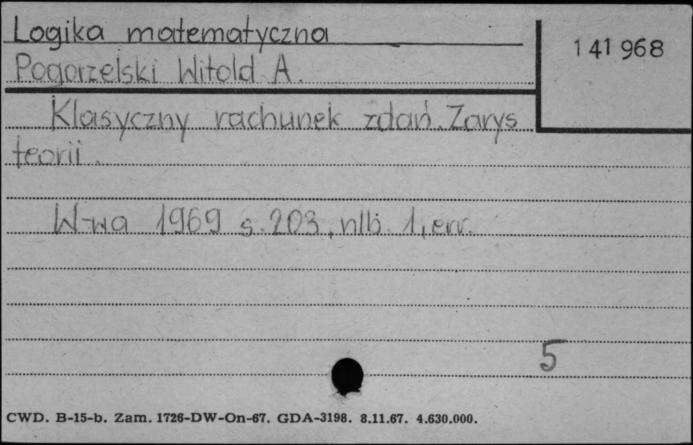 Logika matematyczna
141 968
Pogorzelski Witold A.
Klasyczny rachunek zdań. Zarys
teorii.
W-wa 1969 s. 203, nlb. 1, err.
5
CWD. B-15-b. Zam. 1726-DW-On-67. GDA-3198. 8.11.67. 4.630.000.